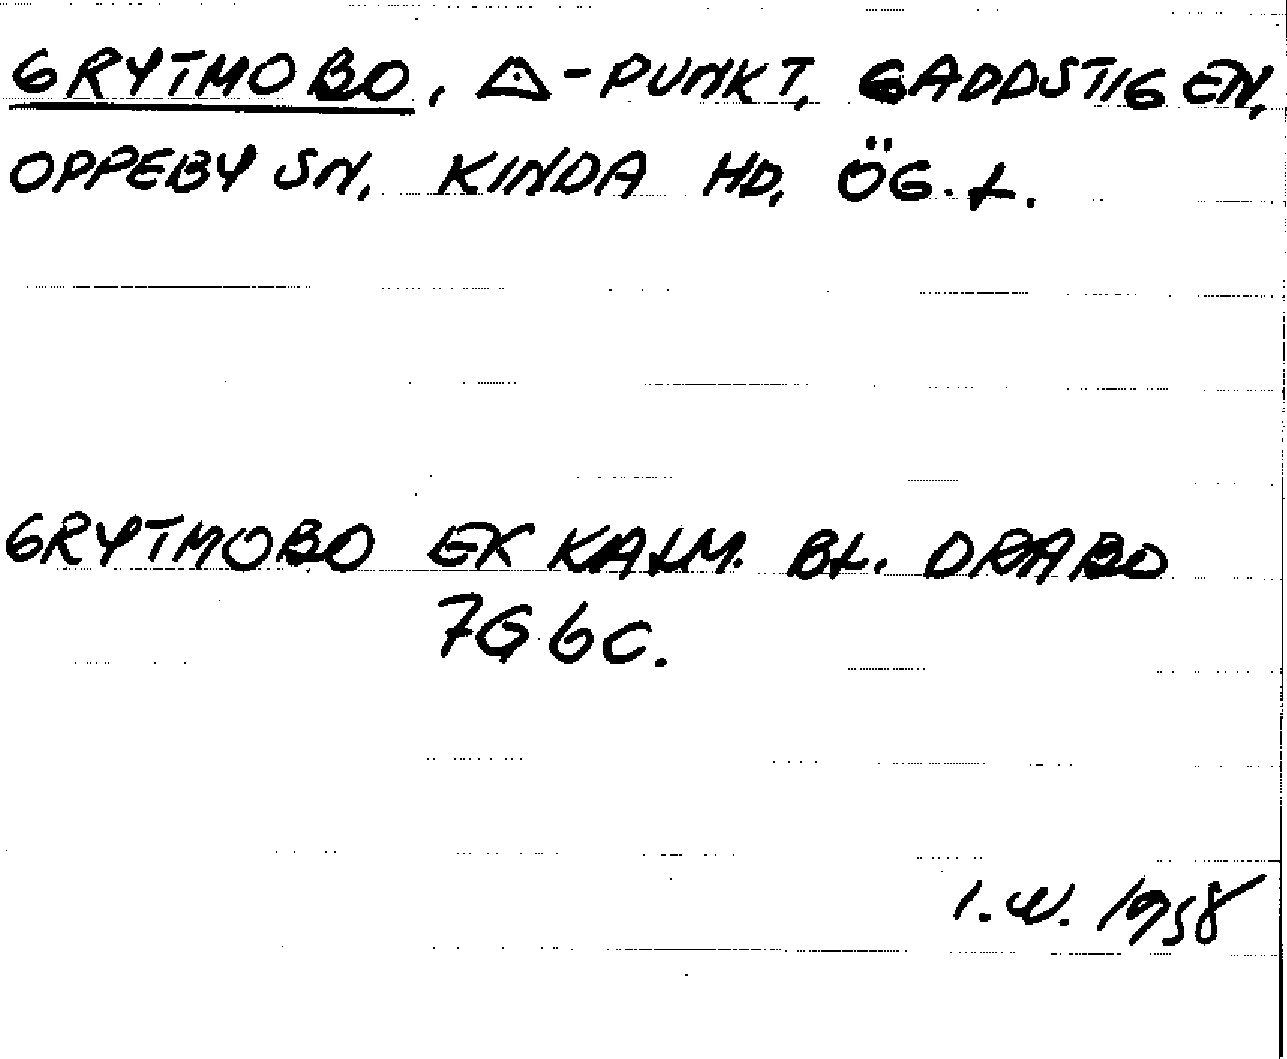 GRYTMOBO, △-PUNKT, GADDSTIGEN,
OPPEBY SN, KINDA HD, ÖG.L.
GRYTMOBO EK KALM. BL. DRABO
7G 6C.
I.W. 1958